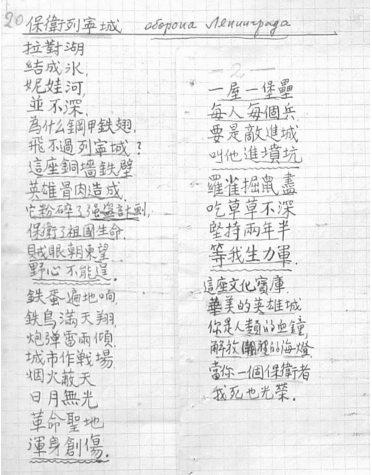 20 保衛列寧城 оборона Ленинграда
拉對湖
結成氷,
妮娃河,
並不深,
為什么鋼甲鉄翅,
飛不過列寧城?
這座銅墻鉄壁
英雄骨肉造成,
它粉碎了強寇計劃,
保衛了祖国生命
賊眼朝東望
野心不能逞.
鉄蛋遍地响
鉄鳥滿天翔
炮弹雷雨傾
城市作戦場
烟火蔽天
日月無光
革命聖地
渾身創傷.
— 2 —
一屋一堡壘
每人每個兵
要是敵進城
叫他進墳坑
羅雀掘鼠盡
吃草草不深
堅持兩年半
等我生力軍.
這座文化寳庫
華美的英雄城
你是人類的血鐘,
解放的海燈,
當你一個保衛者
我死也光榮.